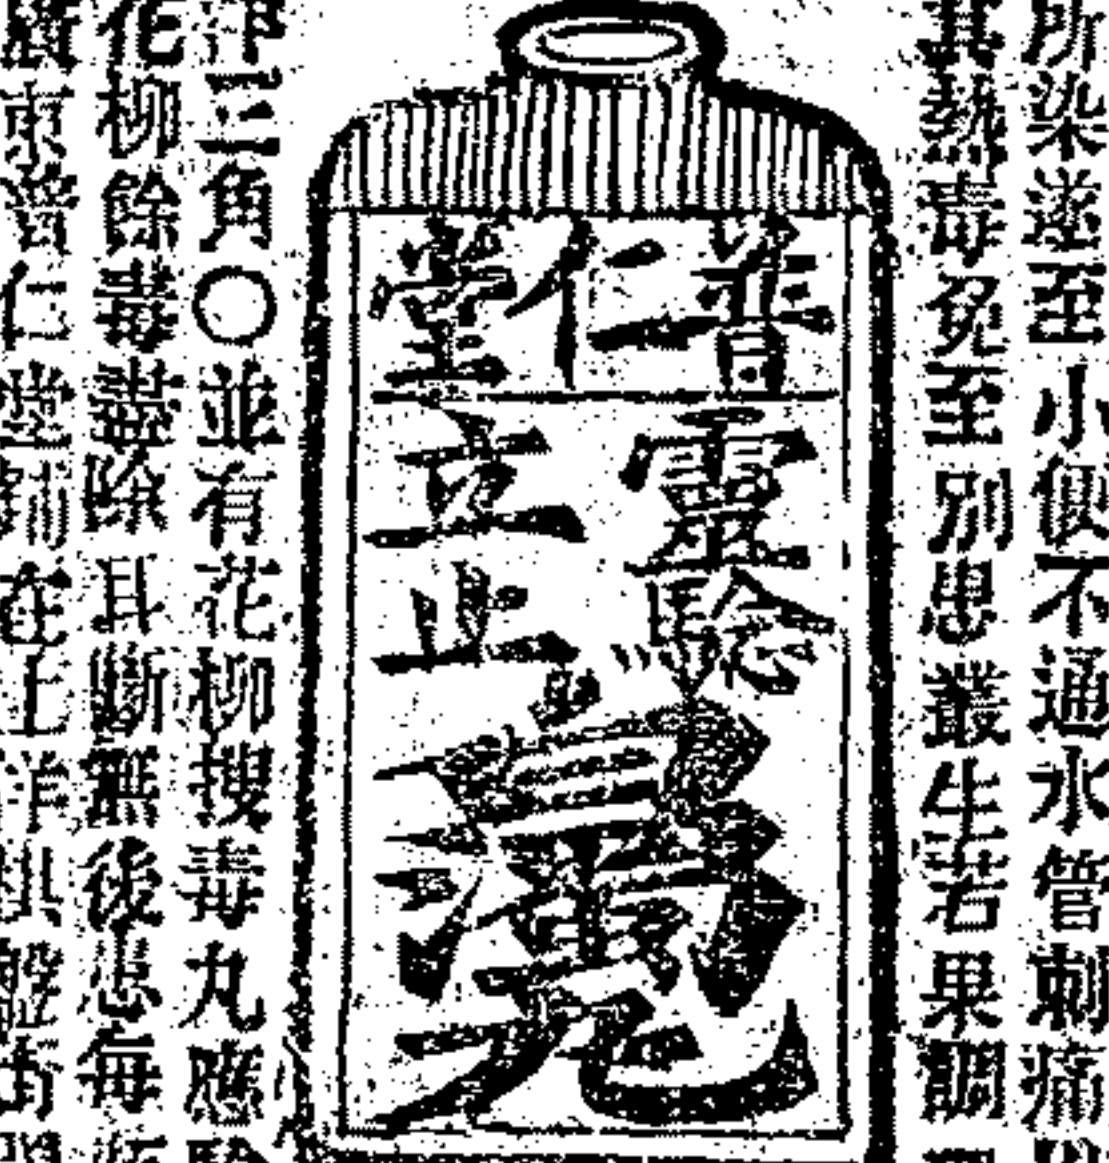 所染遂至小便不通水管刺痛
其熱毒免至別患叢生若果調
普仁堂
靈騐
立止
白濁丸
洋三角〇並有花柳搜毒丸應
花柳餘毒盡除且斷無後患每
廣東普仁堂鋪在上洋棋盤街